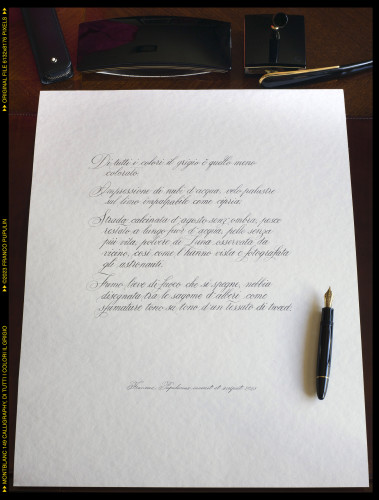 Di tutti i colori il grigio è quello meno
colorato.
Impressione di nubi d'acqua, velo palustre
sul limo impalpabile come cipria.
Strada calcinata d'agosto senz'ombra, pesce
restato a lungo fuor d'acqua, pelo senza
più vita, polvere di Luna osservata da
vicino, così come l'hanno vista e fotografata
gli astronauti.
Fumo lieve di fuoco che si spegne, nebbia
disegnata tra le sagome d'alberi, come
spinature tono su tono d'un tessuto di tweed.
ORIGINAL FILE 6132x8176 PIXELS
©2023 FRANCO PUPULIN
MONTBLANC 149 CALLIGRAPHY, DI TUTTI I COLORI IL GRIGIO